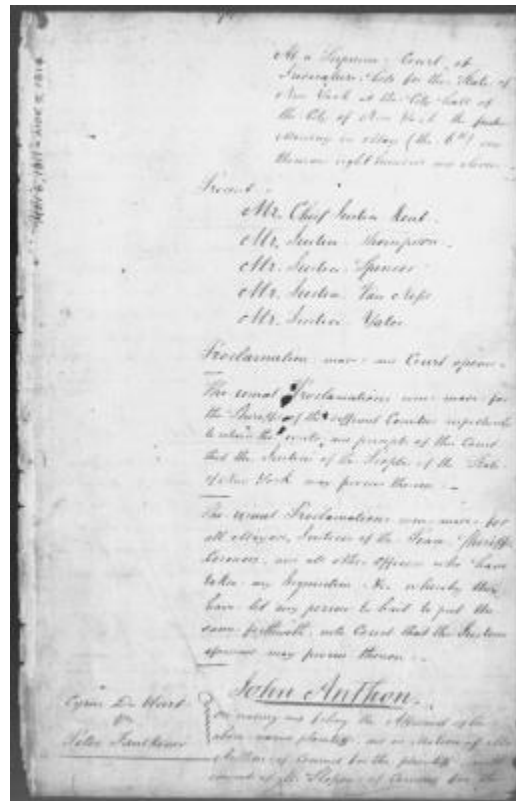 At a Supreme Court of
Judicature held for the State of
New York at the City Hall of
the City of New York the first
Monday in May (the 6th) one
thousand eight hundred and eleven
Present
Mr. Chief Justice Kent
Mr. Justice Thompson
Mr. Justice Spencer
Mr. Justice Van Ness
Mr. Justice Yates
Proclamation made and Court opened
The usual Proclamations were made for
the Sheriffs of the different Counties respectively
to return the writs and precepts of this Court
that the Justices of the People of the State
of New York may proceed thereon
The usual Proclamations were made for
all Mayors, Justices of the Peace, Sheriffs
Coroners and all other officers who have
taken any Inquisition &c. whereby they
have let any person to bail to put the
same forthwith into Court that the Justices
may proceed thereon
John Anthon
Cyrus De
vs
Peter Faulkner
On reading and filing the
above named plaintiff and on Motion of Mr.
Anthon of Counsel for the plaintiff
of Counsel for the